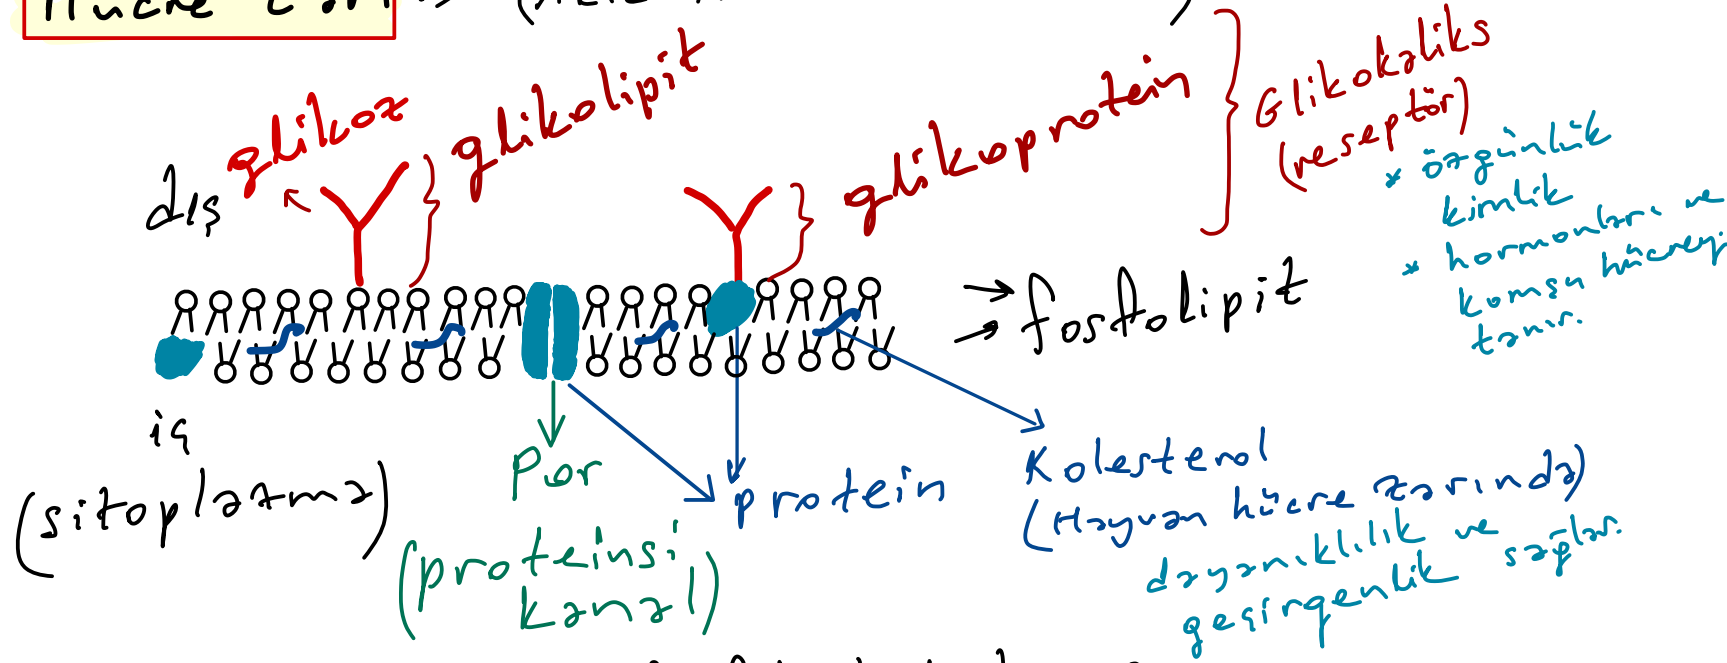 Hücre
glikoz
glikolipit
glikoprotein
Glikokaliks
(reseptör)
* özgünlük
kimlik
* hormonları ve
komşu hücreyi
tanır.
dış
→ fosfolipit
→
iç
(sitoplazma)
Por
(proteinsi
kanal)
protein
Kolesterol
(Hayvan hücre zarında)
dayanıklılık ve
geçirgenlik sağlar.